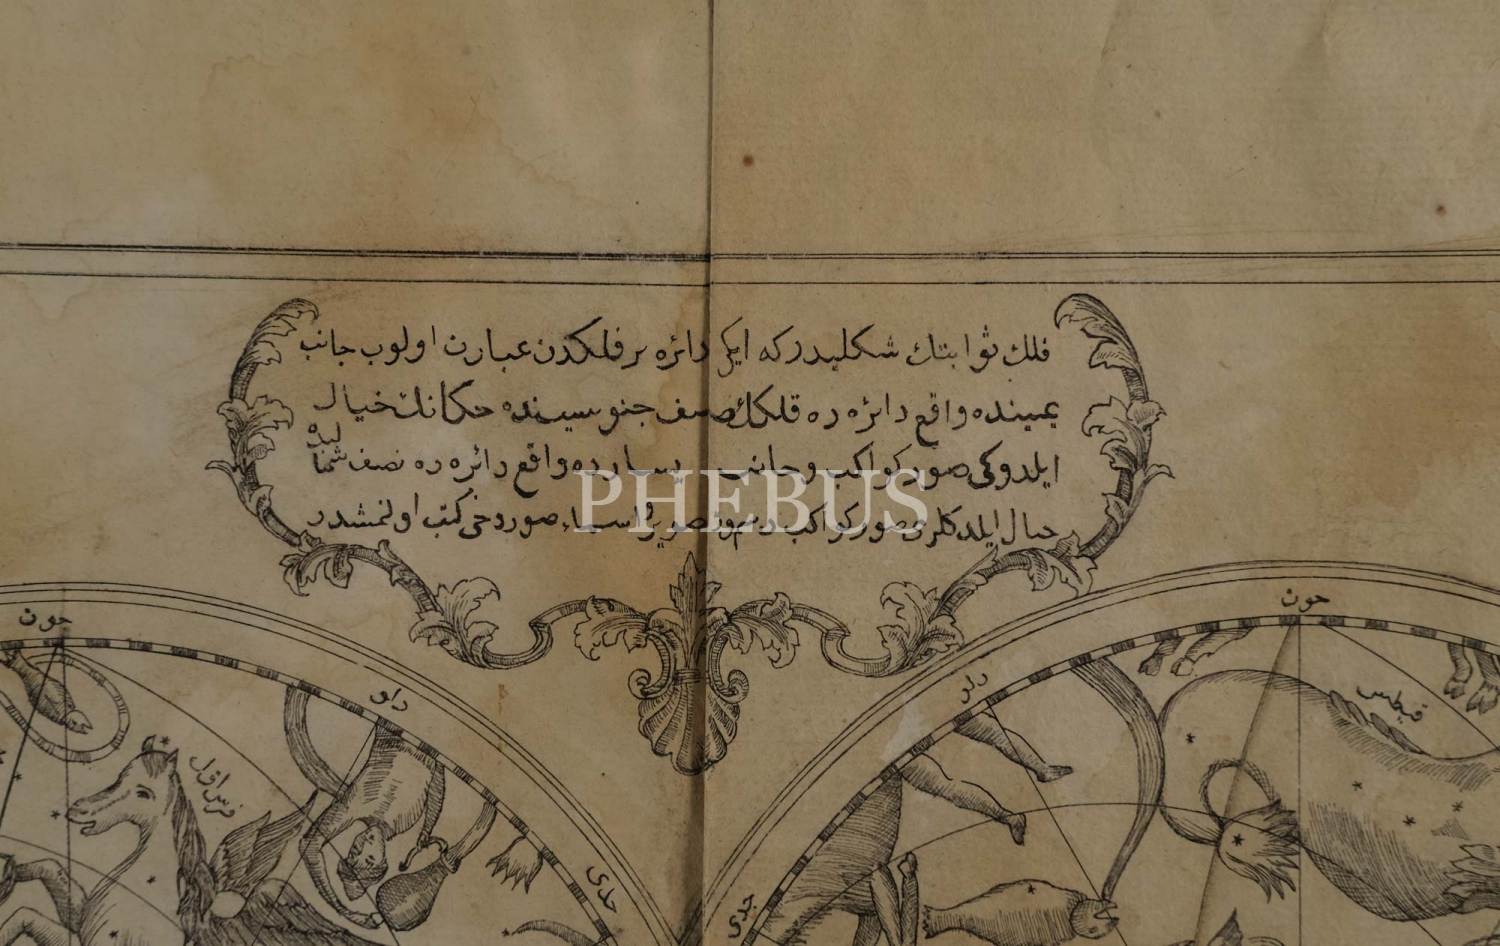 فلك ثوابتك شكليدر كه ايكى دائره بر فلكدن عبارن اولوب جانب
يمينده واقع دائره ده فلكك نصف جنوبيسينده حكمانك خيال
ايلدوكى صور كواكب و جانب يسارده واقع دائره ده نصف شماليده
خيال ايلدكلرى صور كواكب رسم و تصوير و اسماء صور دخى كتب اولنمشدر
PHEBUS
حوت
حوت
دلو
دلو
قيطس
فرس اول
جدى
جدى